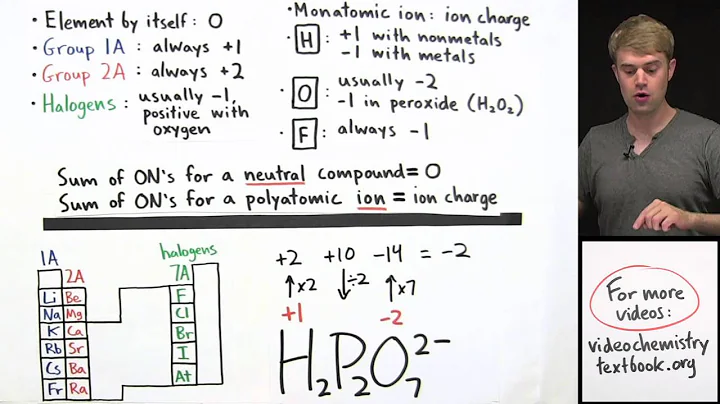 • Element by itself: 0
• Group 1A: always +1
• Group 2A: always +2
• Halogens: usually -1,
positive with
oxygen
• Monatomic ion: ion charge
• H: +1 with nonmetals
-1 with metals
• O: usually -2
-1 in peroxide (H₂O₂)
• F: always -1
Sum of ON's for a neutral compound = 0
Sum of ON's for a polyatomic ion = ion charge
1A
2A
Li Be
Na Mg
K Ca
Rb Sr
Cs Ba
Fr Ra
halogens
7A
F
Cl
Br
I
At
+2 +10 -14 = -2
↑×2 ↓÷2 ↑×7
+1 -2
H₂P₂O₇²⁻
For more
videos:
videochemistry
textbook.org